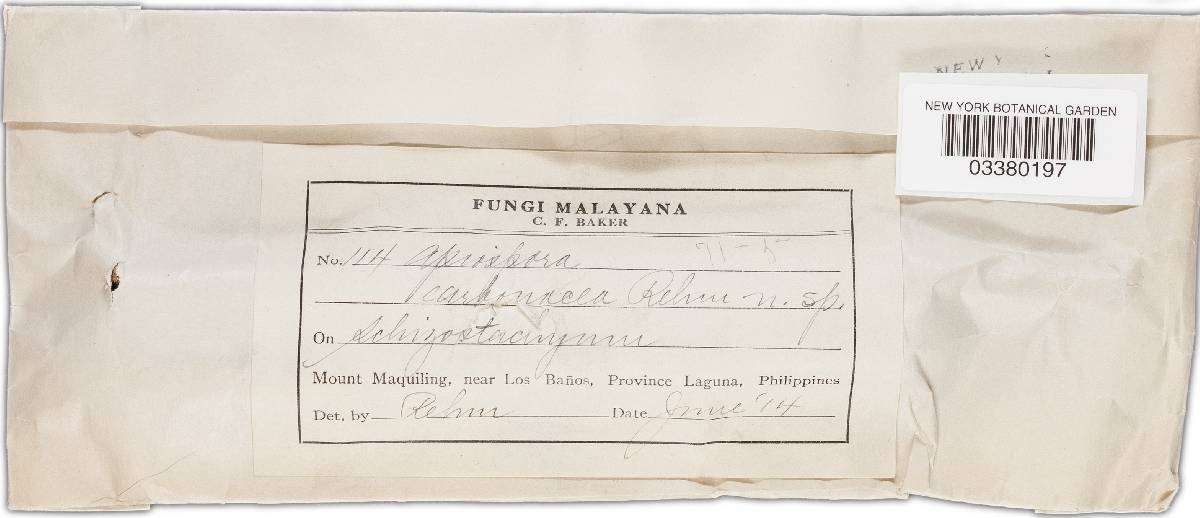 NEW Y
NEW YORK BOTANICAL GARDEN
03380197
FUNGI MALAYANA
C. F. BAKER
No. 114 Apiospora 71-5
carbonacea Rehm n. sp.
On Schizostachyum
Mount Maquiling, near Los Baños, Province Laguna, Philippines
Det. by Rehm Date June '14